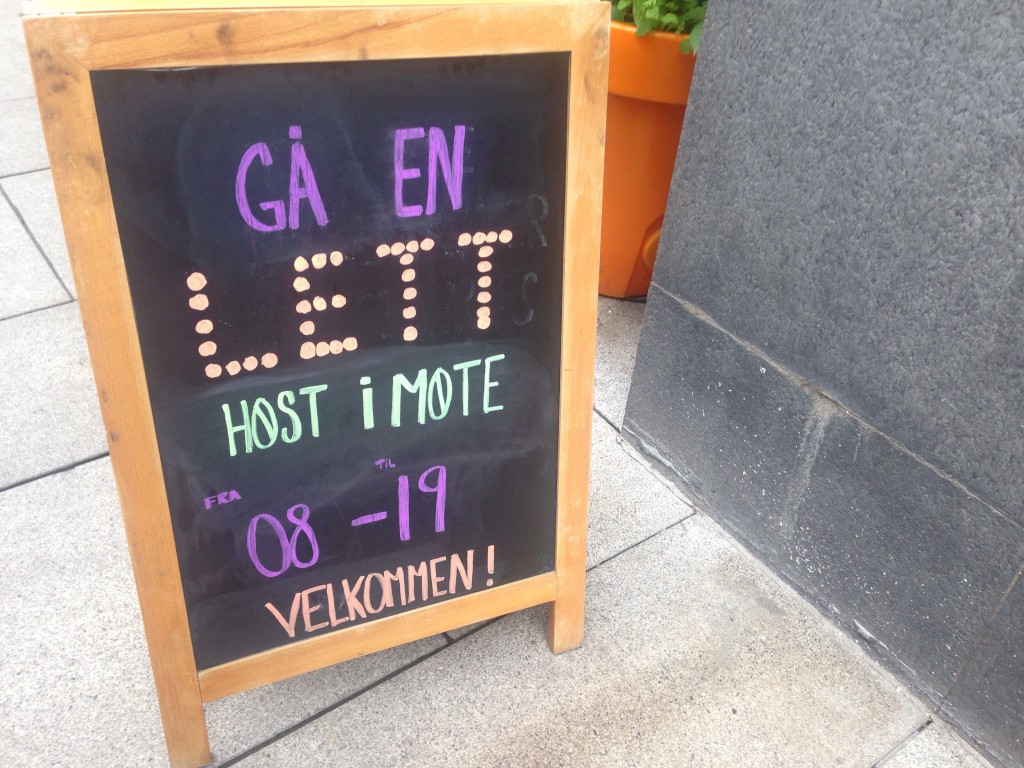 GÅ EN
LETT
HØST i MØTE
FRA TIL
08 - 19
VELKOMMEN!